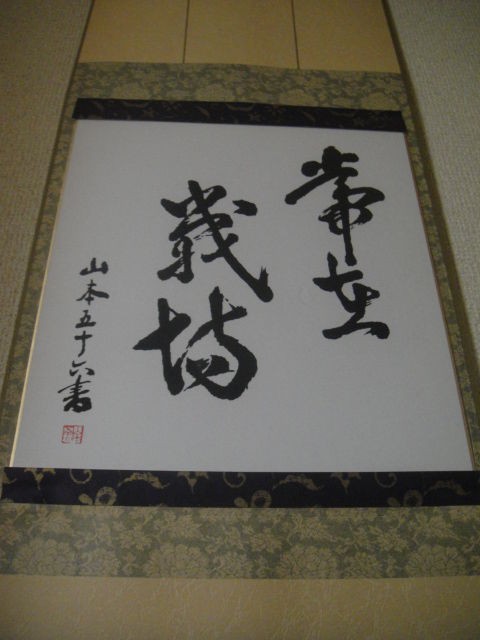 常在
戦場
山本五十六書